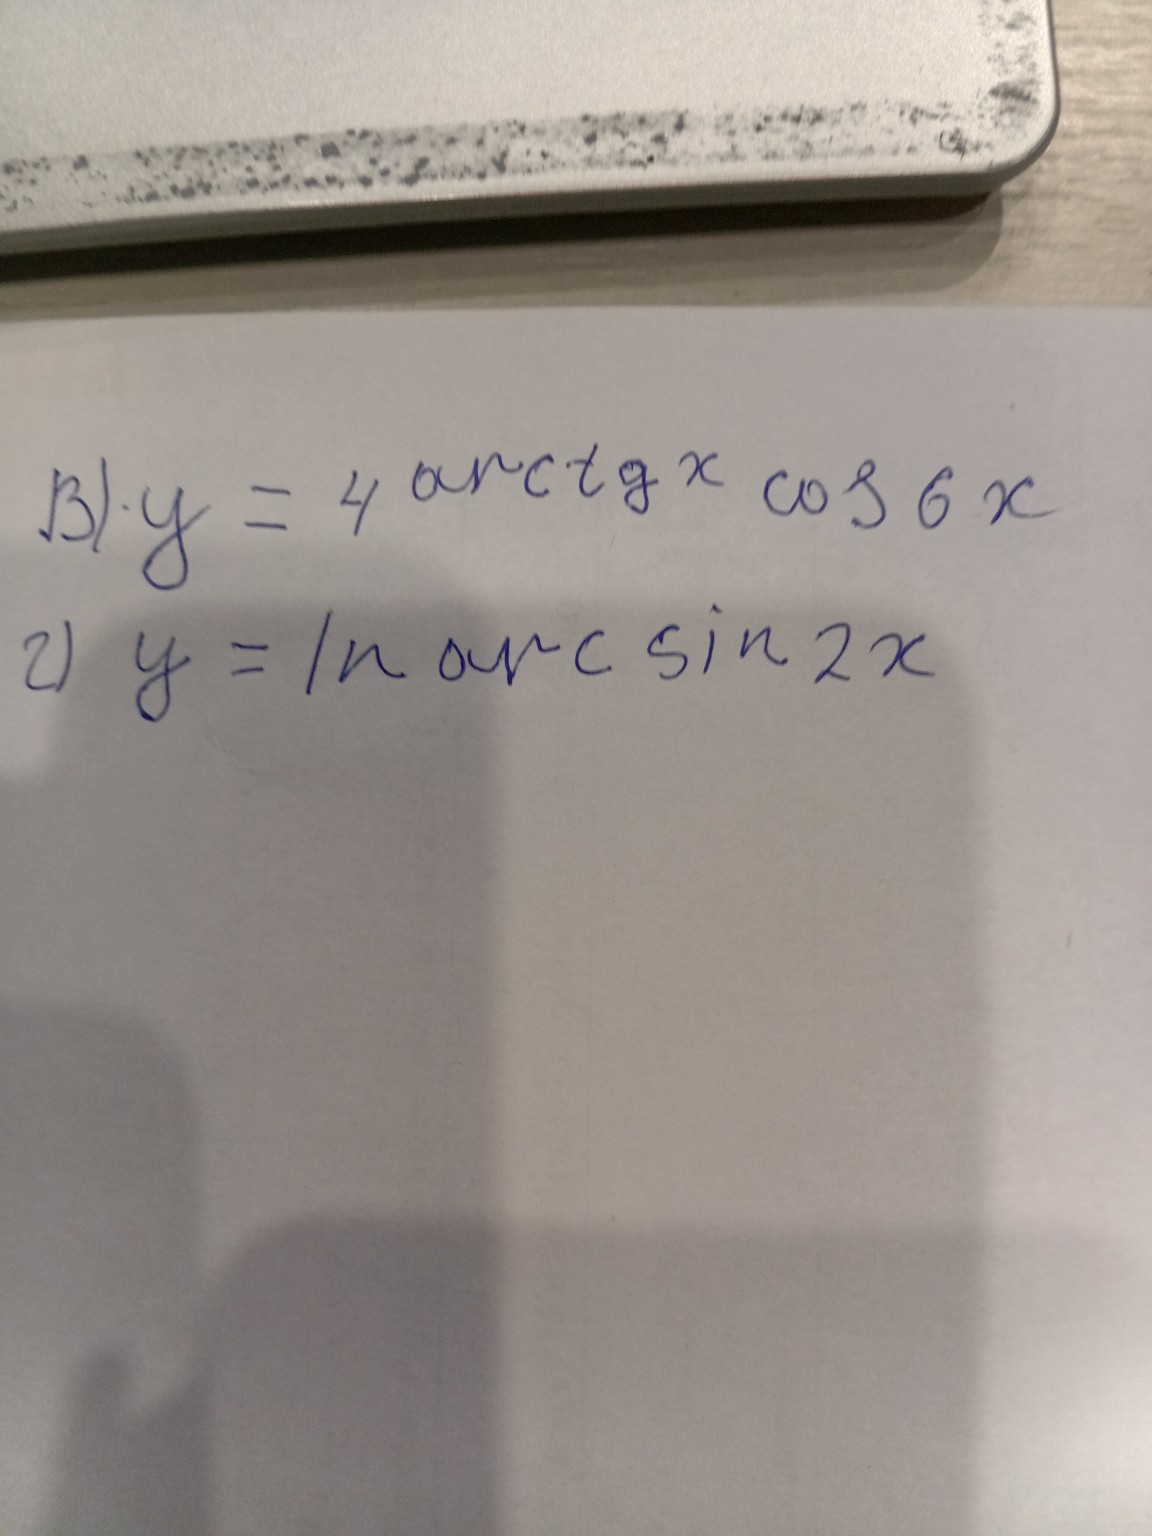 в) y = 4^arctg x cos 6x
г) y = ln arcsin 2x